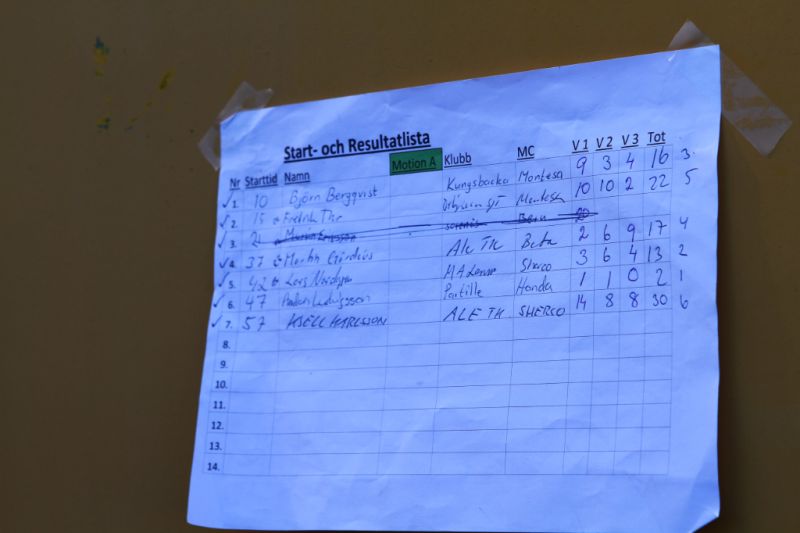 Start- och Resultatlista
Nr Starttid Namn Motion A Klubb MC V 1 V 2 V 3 Tot
1. 10 Björn Bergqvist Kungsbacka Montesa 9 3 4 16 3.
2. 15 Fredrik Montesa 10 10 2 22 5
3. 21
4. 37 Ale TK Beta 2 6 9 17 4
5. 42 Lars Sherco 3 6 4 13 2
6. 47 Partille Honda 1 1 0 2 1
7. 57 KJELL KARLSSON ALE TK SHERCO 14 8 8 30 6
8.
9.
10.
11.
12.
13.
14.